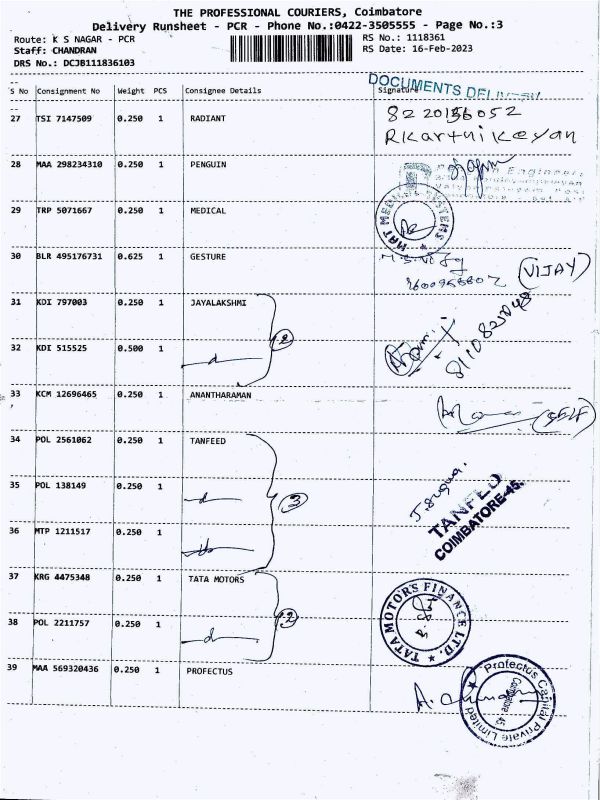 THE PROFESSIONAL COURIERS, Coimbatore
Delivery Runsheet - PCR - Phone No.:0422-3505555 - Page No.:3
Route: K S NAGAR - PCR
RS No.: 1118361
Staff: CHANDRAN
RS Date: 16-Feb-2023
DRS No.: DCJB111836103
DOCUMENTS DELIVERY
S No Consignment No Weight PCS Consignee Details Signature
27 TSI 7147509 0.250 1 RADIANT 8220156052
RKarthikeyan
28 MAA 298234310 0.250 1 PENGUIN Engineers
29 TRP 5071667 0.250 1 MEDICAL MAT MEDICAL SYSTEMS
30 BLR 495176731 0.625 1 GESTURE (VIJAY)
31 KDI 797003 0.250 1 JAYALAKSHMI
2
32 KDI 515525 0.500 1 d
33 KCM 12696465 0.250 1 ANANTHARAMAN (SELF)
34 POL 2561062 0.250 1 TANFEED
35 POL 138149 0.250 1 d 3
TANFED
COIMBATORE-45.
36 MTP 1211517 0.250 1
37 KRG 4475348 0.250 1 TATA MOTORS TATA MOTORS FINANCE LTD.
38 POL 2211757 0.250 1 d 2
39 MAA 569320436 0.250 1 PROFECTUS Profectus Capital Private Limited
Coimbatore 45